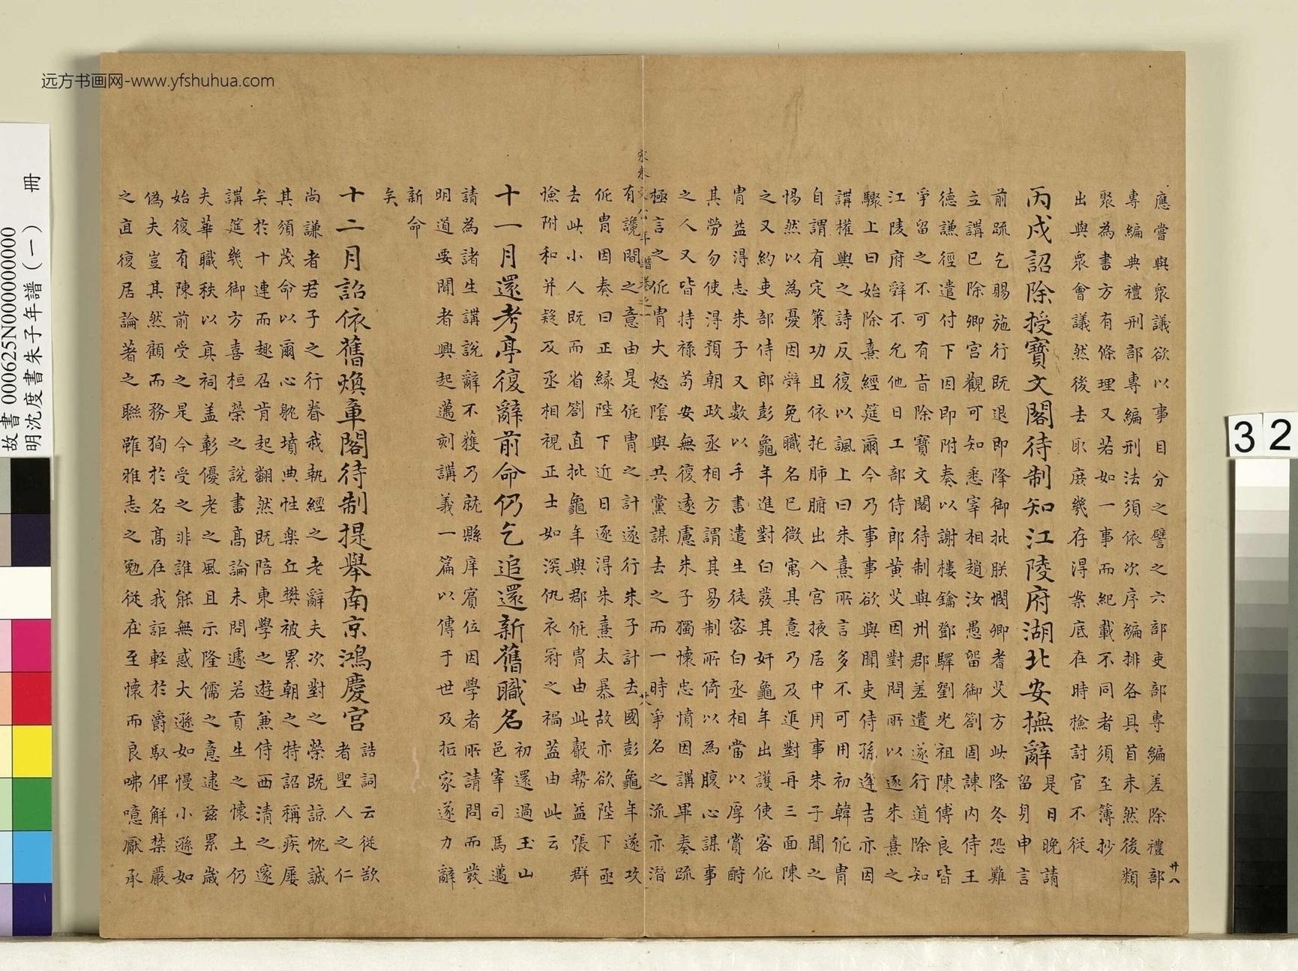 远方书画网-www.yfshuhua.com
應嘗與衆議欲以事目分之譬之六部吏部專編差除禮部
專編典禮刑部專編刑法須依次序編排各具首末然後類
聚為書方有條理又若如一事而紀載不同者須至簿抄
出與衆會議然後去取庶幾存得案底在時檢討官不従
丙戌詔除授寶文閣待制知江陵府湖北安撫辭是日晚請
留身申言
前疏乞賜施行既退即降御批朕憫卿耆艾方此隆冬恐難
立講已除卿宮觀可知悉宰相趙汝愚留御劄固諫内侍王
德謙徑遣付下因即附奏以謝樓鑰鄧驛劉光祖陳傅良皆
爭留之不可有旨除寶文閣待制與州郡差遣遂行道除知
江陵府辭不允他日工部侍郎黄艾因對問所以逐朱熹之
驟上曰始除熹經筵爾今乃事事欲與聞吏侍孫逢吉亦因
講權輿之詩反復以諷上曰朱熹所言多不可用初韓侂胄
自謂有定策功且依托肺腑出入宫掖居中用事朱子聞之
惕然以為憂因辭免職名已微寓其意乃及進對再三面陳
之又約吏部侍郎彭龜年進對白發其奸龜年出護使客侂
胄益得志朱子又數以手書遣生徒密白丞相當以厚賞酬
其勞勿使淂預朝政丞相方謂其易制所倚以為腹心謀事
之人又皆持禄苟安無復逺慮朱子獨懐忠憤因講畢奏疏
極言之侂胄大怒隂與其黨謀去之而一時爭名之流亦潛
有讒間之意由是侂胄之計遂行朱子計去國彭龜年遂攻
侂胄因奏曰正縁陛下近日逐得朱熹太暴故亦欲陛下亟
去此小人既而省劄直批龜年與郡侂胄由此聲勢益張群
憸附和并疑及丞相視正士如深仇衣冠之禍蓋由此云
十一月還考亭復辭前命仍乞追還新舊職名初還過玉山
邑宰司馬邁
請為諸生講說辭不獲乃就縣庠賓位因學者所請問而發
明道要聞者興起邁刻講義一篇以傳于世及拒家遂力辭
新命
矣
十二月詔依舊煥章閣待制提舉南京鴻慶宫誥詞云従欲
者聖人之仁
尚謙者君子之行眷我執經之老辭夫次對之榮既諒忱誠
其須茂命以爾心躭墳典性樂丘樊被累朝之特詔稱疾屢
矣於十連而趣召肯起翻然既陪東學之遊兼侍西清之邃
講筵幾御方喜桓榮之說書髙論未問遽若貢生之懐土仍
夫華職秩以真祠盖彰優老之風且示隆儒之意逮兹累歲
始復有陳前受之是今受之非誰能無惑大遜如慢小遜如
偽夫豈其然顧而務狥於名髙在我詎軽於爵馭俾解禁嚴
之直復居論著之聯雖雅志之勉従在至懐而良咈噫厭承
廿八
故書 000625N000000000
明沈度書朱子年譜(一) 冊
32